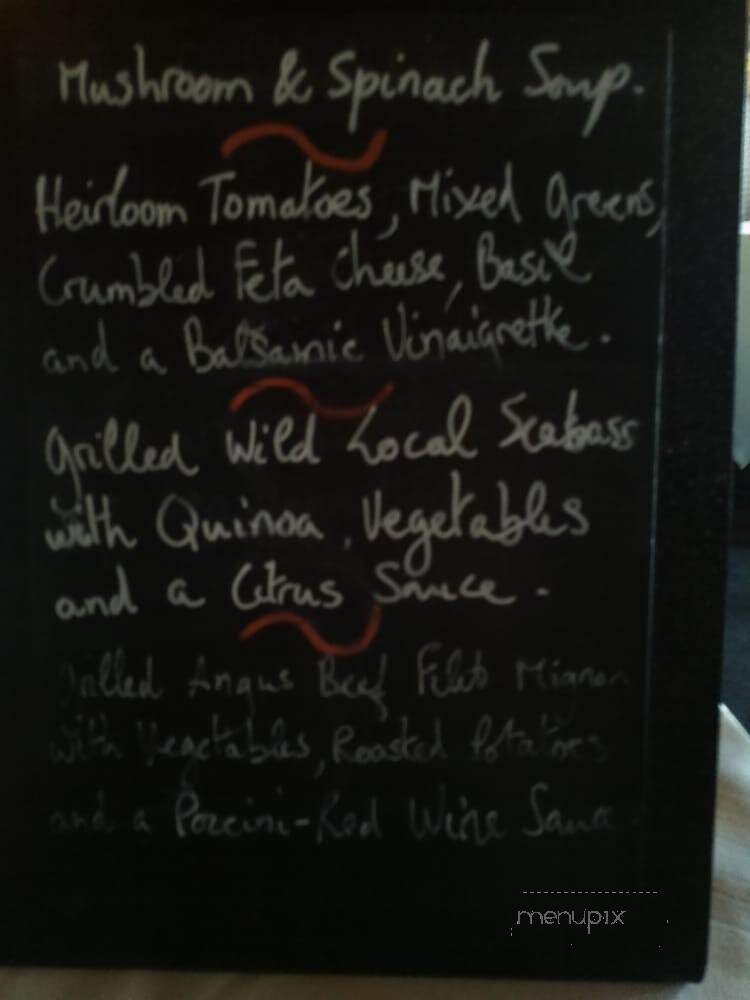 Mushroom & Spinach Soup.
Heirloom Tomatoes, Mixed Greens,
Crumbled Feta Cheese, Basil
and a Balsamic Vinaigrette.
Grilled Wild Local Seabass
with Quinoa, Vegetables
and a Citrus Sauce.
Grilled Angus Beef Filet Mignon
with Vegetables, Roasted Potatoes
and a Porcini-Red Wine Sauce.
menupix